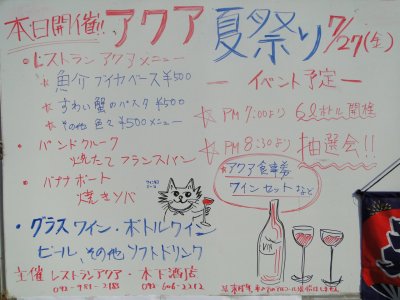 本日開催!! アクア 夏祭り 7/27(土)
・レストランアクアメニュー
☆魚介ブイヤベース¥500
☆ずわい蟹のパスタ¥500
☆その他色々¥500メニュー
・パンドクルーク
焼たてフランスパン
・バナナボート
焼きソバ
・グラスワイン・ボトルワイン
ビール、その他ソフトドリンク
主催 レストランアクア・木下酒店
ー イベント予定 ー
☆ PM 7:00より 6ℓボトル開栓
☆ PM 8:30より 抽選会!!
アクア食事券
ワインセットなど
VIN